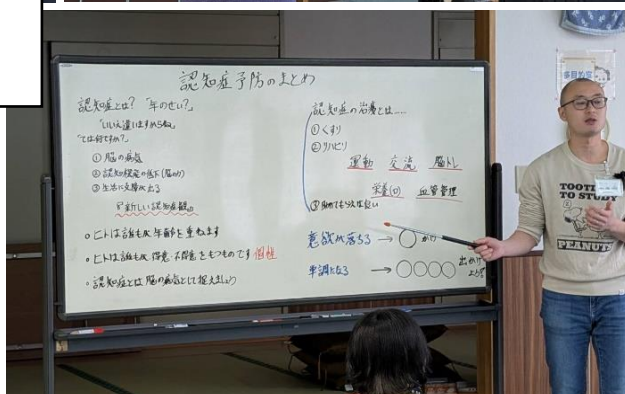 認知症予防のまとめ
認知症とは? 「年のせい?」
「いいえ違いますからね」
「では何ですか?」
① 脳の病気
② 認知機能の低下(脳の力)
③ 生活に支障が出る
新しい認知症観
○ヒトは誰も成年齢を重ねます
○ヒトは誰も成得意・不得意をもつものです 個性
○認知症とは脳の病気として捉えましょう
認知症の治療とは....
① くすり
② リハビリ
運動 交流 脳トレ
栄養(口) 血管管理
③
意欲が落ちる → ○
単調となる → ○○○○
TOOTI
TO STUDY
PEANUTS